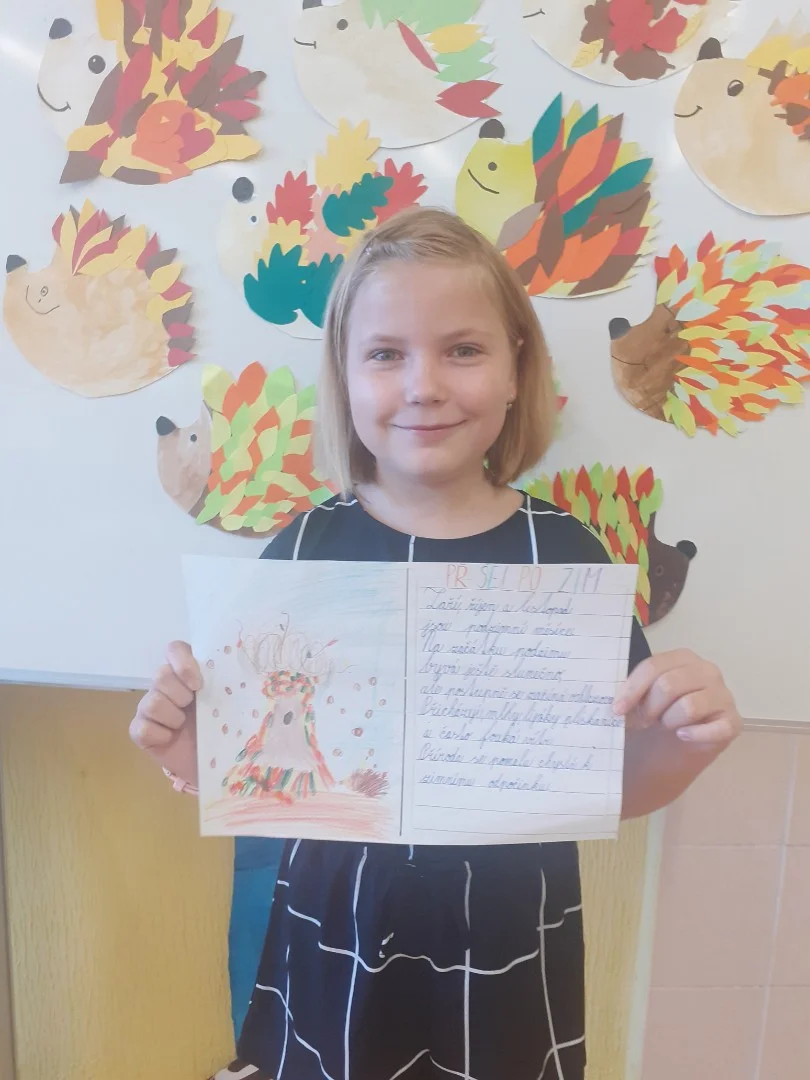 PŘ ŠEL PO ZIM
Září, říjen a listopad
jsou podzimní měsíce.
Na začátku podzimu
bývá ještě slunečno,
ale postupně se začíná
Přicházejí mlhy, lijáky, plískanice
a často fouká vítr.
Příroda se pomalu chystá k
zimnímu odpočinku.